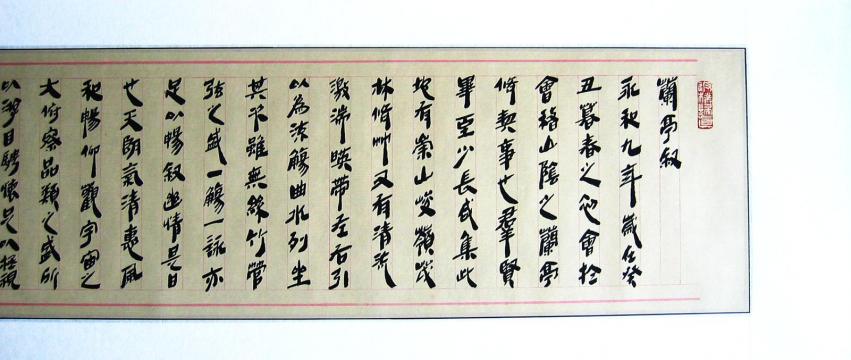 蘭亭叙
永和九年歲在癸
丑暮春之初會於
會稽山陰之蘭亭
脩契事也羣賢
畢至少長咸集此
地有崇山峻嶺茂
林脩竹又有清流
激湍暎帶左右引
以為流觴曲水列坐
其次雖無絲竹管
弦之盛一觴一詠亦
足以暢叙幽情是日
也天朗氣清惠風
和暢仰觀宇宙之
大俯察品類之盛所
以遊目騁懷足以極視